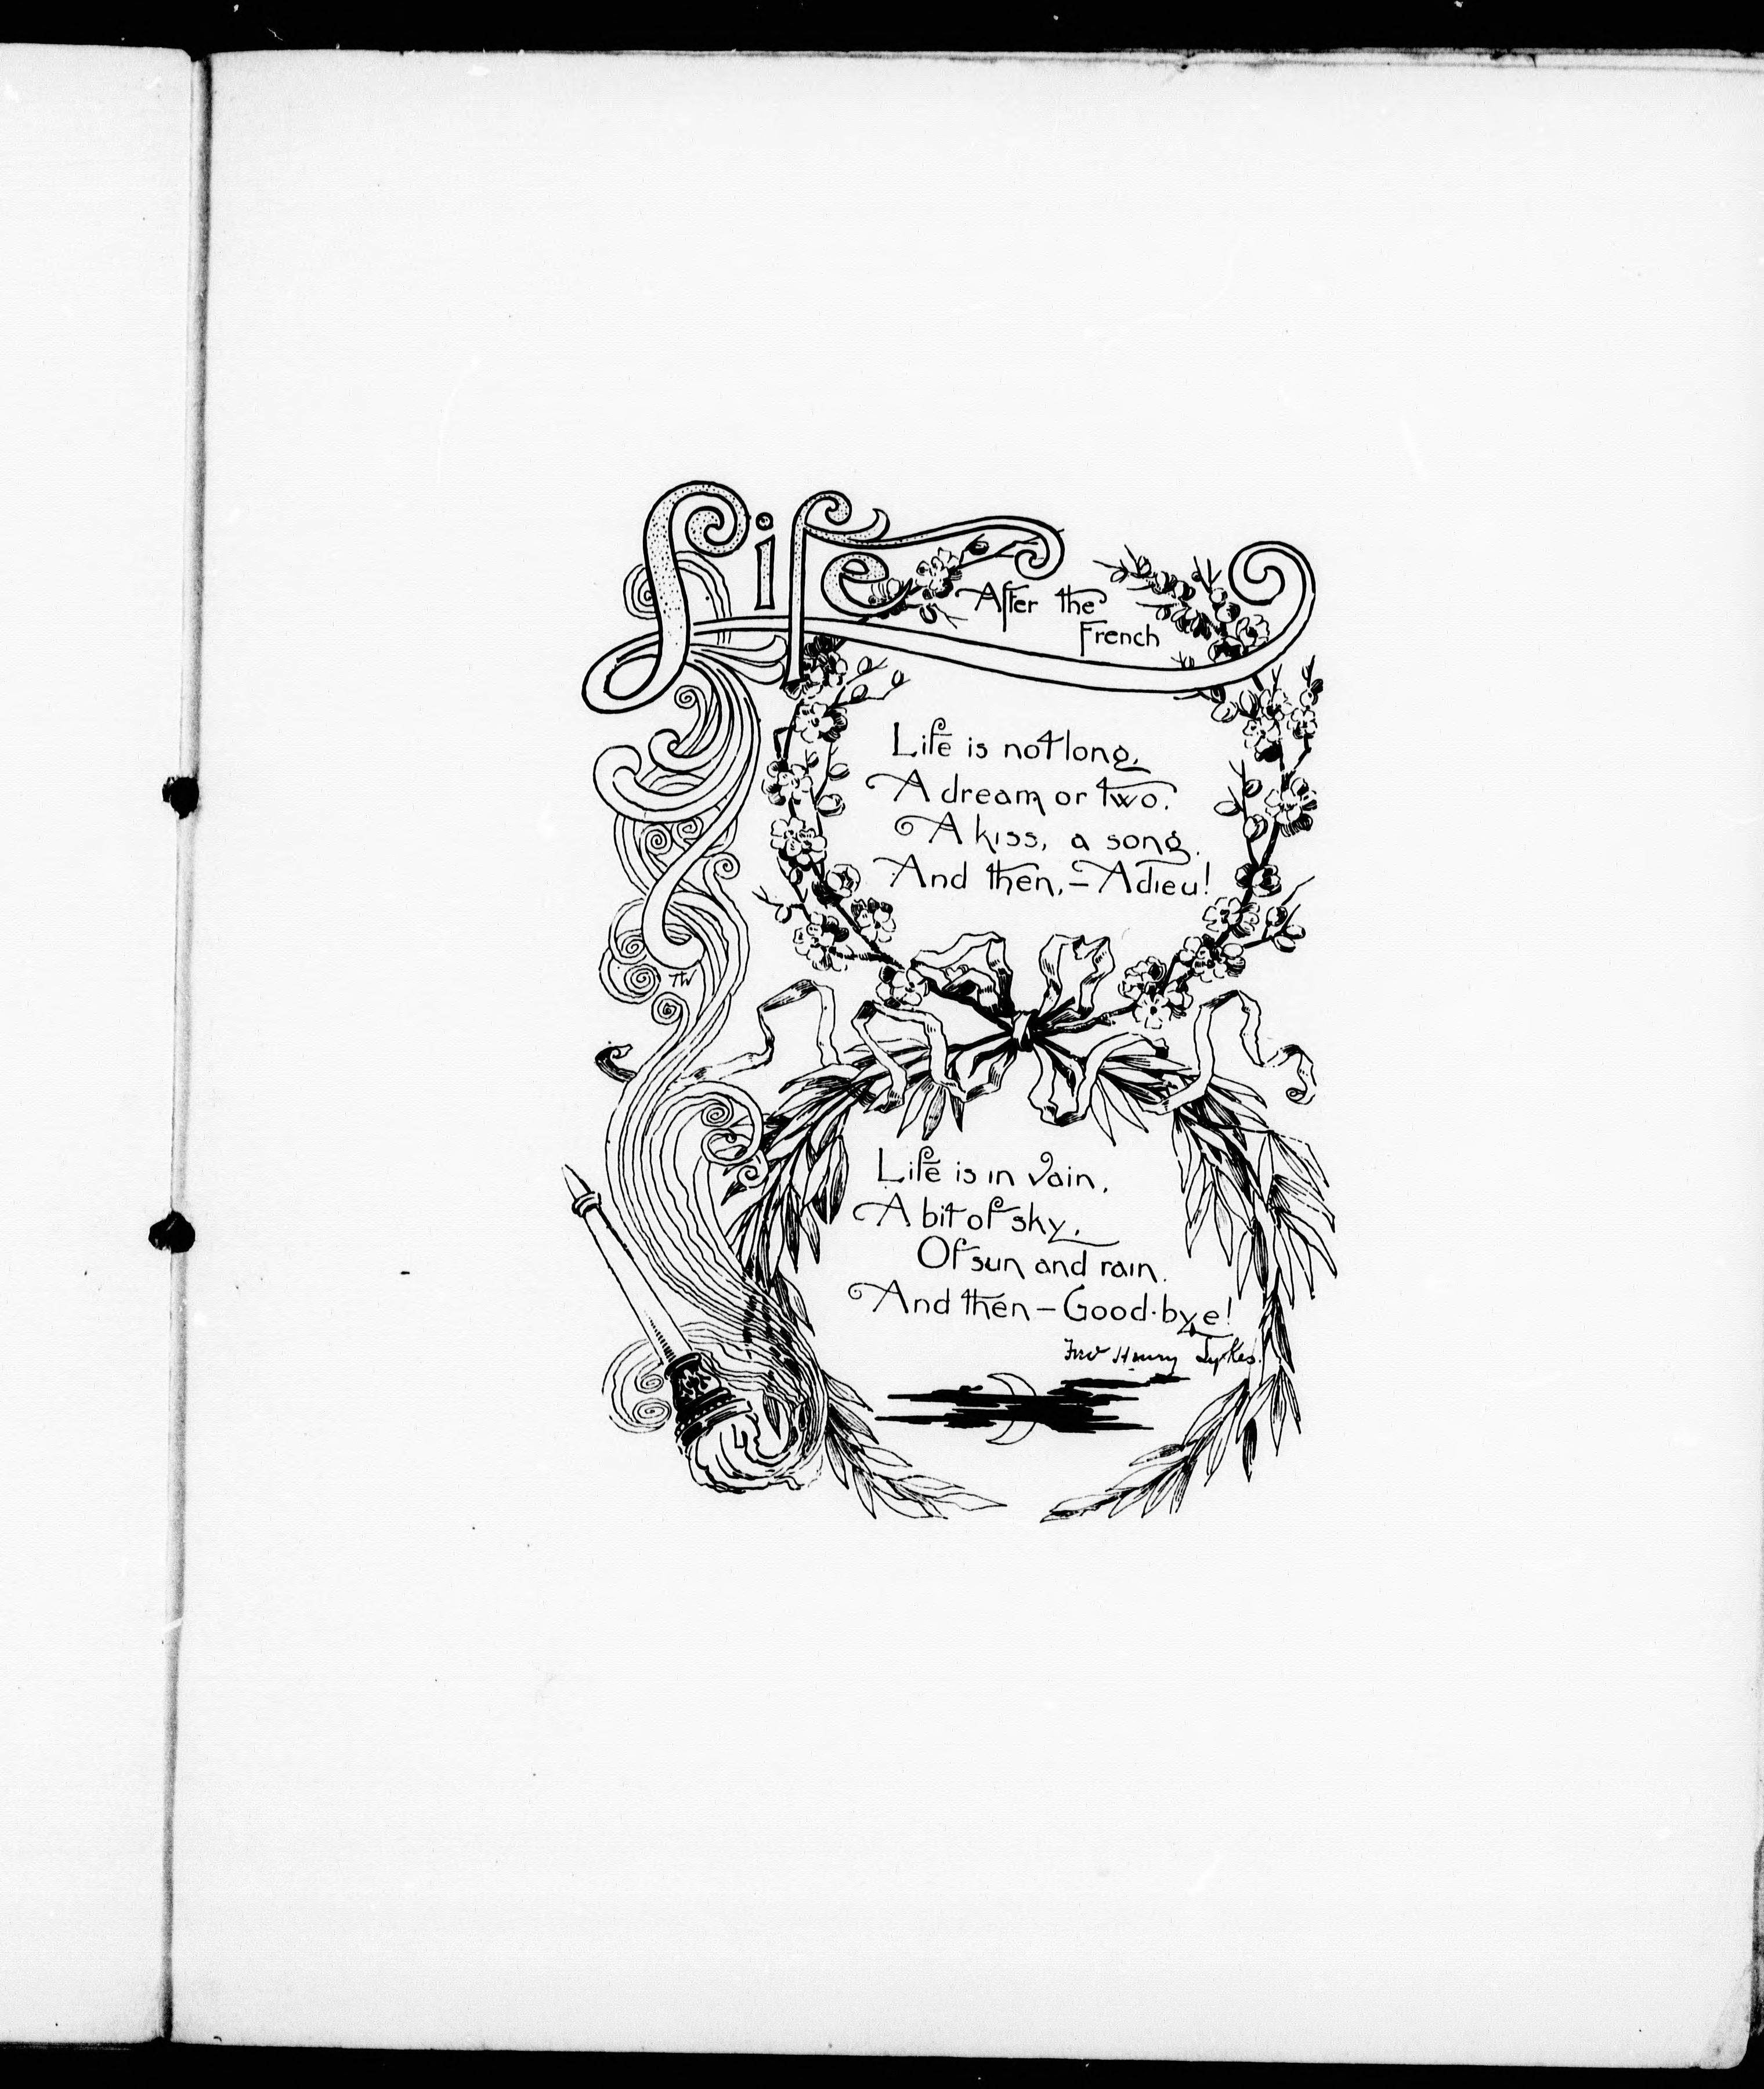 Life
After the
French
Life is not long,
A dream or two.
A kiss, a song.
And then,—Adieu!
TW
Life is in vain,
A bit of sky,
Of sun and rain.
And then—Good-bye!
Fred Henry Sykes.